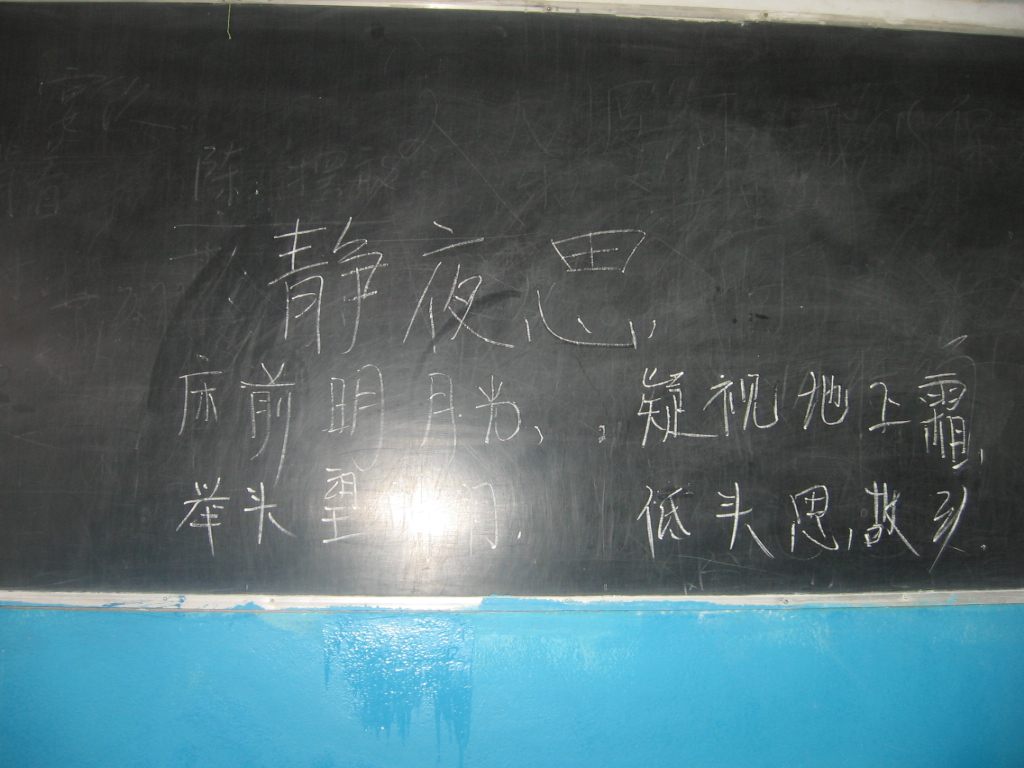 静夜思
床前明月光、,疑视地上霜.
举头望明月.低头思故乡.